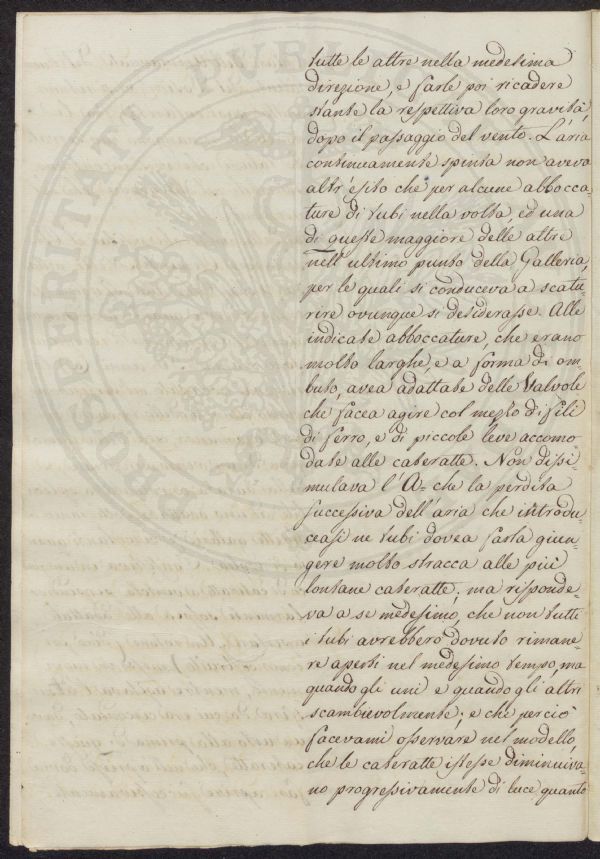 tutte le altre nella medesima
direzione, e farle poi ricadere
stante la respettiva loro gravità,
dopo il passaggio del vento. L'aria
continuamente spinta non aveva
altr'esito che per alcune abbocca=
ture di tubi nella volta, ed una
di queste maggiore delle altre
nell'ultimo punto della Galleria,
per le quali si conduceva a scatu=
rire ovunque si desiderasse. Alle
indicate abboccature, che erano
molto larghe, e a forma di om=
buto, avea adattate delle Valvole
che facea agire col mezzo di fili
di ferro, e di piccole leve accomo=
date alle cateratte. Non dissi=
mulava l'A= che la perdita
successiva dell'aria che introdu=
ceasi ne tubi dovea farla giun=
gere molto stracca alle più
lontane cateratte; ma risponde=
va a se medesimo, che non tutti
i tubi avrebbero dovuto rimane=
re aperti nel medesimo tempo, ma
quando gli uni e quando gli altri
scambievolmente; e che perciò
facevami osservare nel modello,
che le cateratte istesse diminuiva=
no progressivamente di luce quanto
PROSPERITATI PVBLICAE